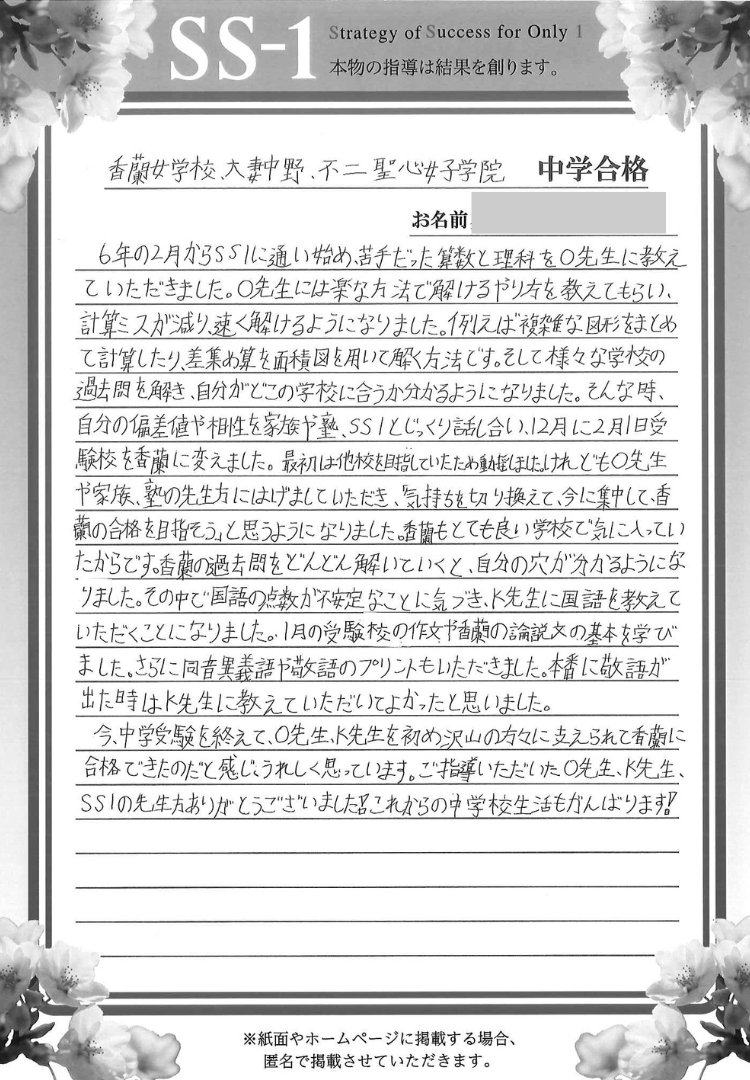 SS-1
Strategy of Success for Only 1
本物の指導は結果を創ります。
香蘭女学校、大妻中野、不二聖心女子学院 中学合格
お名前
6年の2月からSS1に通い始め、苦手だった算数と理科をO先生に教え
ていただきました。O先生には楽な方法で解けるやり方を教えてもらい、
計算ミスが減り、速く解けるようになりました。例えば複雑な図形をまとめ
て計算したり、差集め算を面積図を用いて解く方法です。そして様々な学校の
過去問を解き、自分がどこの学校に合うか分かるようになりました。そんな時、
自分の偏差値や相性を家族や塾、SS1とじっくり話し合い、12月に2月1日受
験校を香蘭に変えました。最初は他校を目指していたため動揺しました。けれどもO先生
や家族、塾の先生方にはげましていただき、「気持ちを切り換えて、今に集中して、香
蘭の合格を目指そう」と思うようになりました。香蘭もとても良い学校で気に入ってい
たからです。香蘭の過去問をどんどん解いていくと、自分の穴が分かるようにな
りました。その中で国語の点数が不安定なことに気づき、K先生に国語を教えて
いただくことになりました。1月の受験校の作文や香蘭の論説文の基本を学び
ました。さらに同音異義語や敬語のプリントもいただきました。本番に敬語が
出た時はK先生に教えていただいてよかったと思いました。
今、中学受験を終えて、O先生、K先生を初め沢山の方々に支えられて香蘭に
合格できたのだと感じ、うれしく思っています。ご指導いただいたO先生、K先生、
SS1の先生方ありがとうございました!これからの中学校生活もがんばります!
※紙面やホームページに掲載する場合、
匿名で掲載させていただきます。